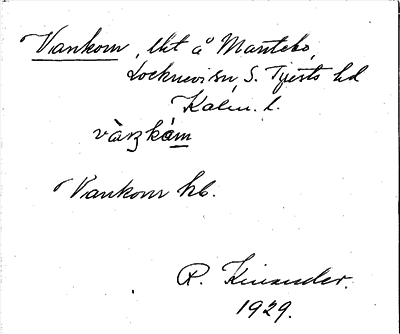 Vankom, lht å Mantebo,
Locknevi sn, S. Tjusts hd
Kalm. l.
vàŋkám
Vankom hb.
R. Kinander.
1929.